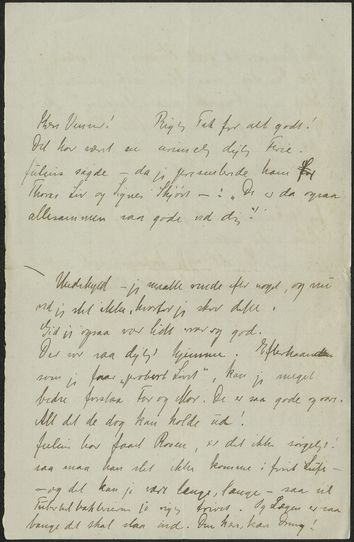 Kære Venner! Rigtig Tak for alt godt!
Det har været en deylig Ferie.
Julius sagde – da jeg præsenterede ham for
Thoras Liv og Signes Skjört –: "De er da ogsaa
allesammen saa gode ved dig"!
Undskyld – jeg maatte vende efter noget, og nu
ved jeg slet ikke, hvorfor jeg skrev dette.
Gid jeg ogsaa var lidt rar og god.
Der var saa dyligt hjemme. Efterhaanden
som jeg faar "probert Livet" kan jeg meget
bedre forstaa Far og Mor. De er saa gode ogsaa.
Alt det de dog kan holde ud!
Julius har faaet Rosen, er det ikke sørgeligt!
saa man kan slet ikke komme i frisk Luft –
– og det kan jo vare længe, længe – saa vil
Tuberkelbakterierne jo rigtig trives. Og Lægen er saa
bange det skal slaa ind. Den kan, kan Dreng!